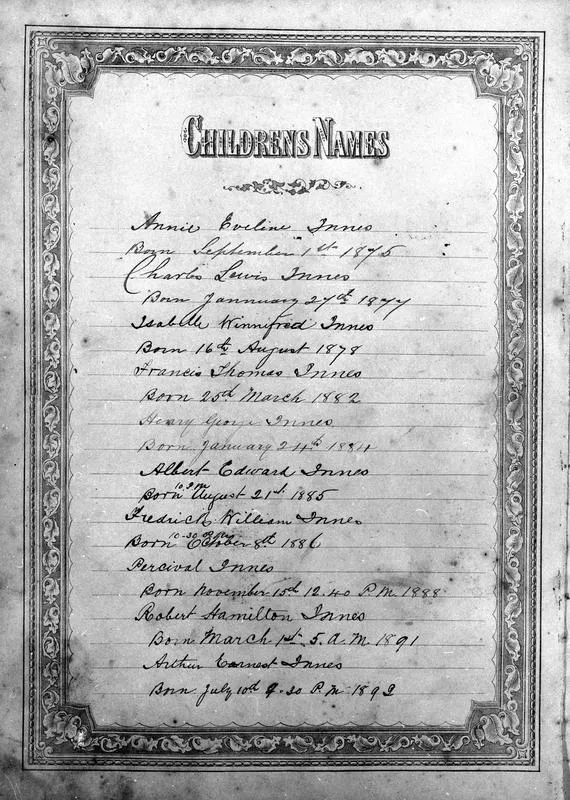 CHILDRENS NAMES
Annie Eveline Innes
Born September 1st 1875
Charles Lewis Innes
Born Jannuary 27th 1877
Isabelle Winnifred Innes
Born 16th August 1878
Francis Thomas Innes
Born 25d March 1882
Henry George Innes
Born January 24th 1884
Albert Edward Innes
10 P.M
Born August 21st 1885
Fredrick William Innes
10-30
Born October 8th 1886
Percival Innes
Born November 15d 12.40 P.M. 1888
Robert Hamilton Innes
Born March 1st 5. A. M 1891
Arthur Earnest Innes
Born July 10d 9.20 P.M 1892